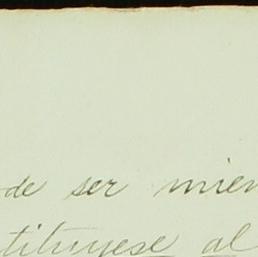 de ser mien
tituyese al